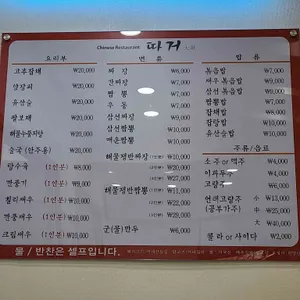 Chinese Restaurant 따거
요리부
고추잡채 ₩20,000
양장피 ₩20,000
유산슬 ₩20,000
팔보채 ₩20,000
해물누룽지탕 ₩20,000
술국 (안주용) ₩20,000
탕수육 (1인분) ₩8,000
깐풍기 (1인분) ₩9,000
칠리새우 (1인분) ₩10,000
깐풍새우 (1인분) ₩10,000
크림새우 (1인분) ₩10,000
면류
짜장 ₩6,000
간짜장 ₩7,000
짬뽕 ₩7,000
우동 ₩7,000
삼선짜장 ₩9,000
삼선짬뽕 ₩10,000
매운짬뽕 ₩10,000
해물쟁반짜장 ₩10,000
해물쟁반짬뽕 ₩11,000
군(물)만두 ₩6,000
밥류
볶음밥 ₩7,000
새우볶음밥 ₩8,000
삼선볶음밥 ₩9,000
짬뽕밥 ₩7,000
잡채밥 ₩8,000
잡탕밥 ₩10,000
유산슬밥 ₩10,000
주류/음료
소주 or 맥주 ₩4,000
이과두주 ₩4,000
고량주 ₩6,000
연태고량주 소 ₩13,000
(공부가주) 중 ₩25,000
대 ₩40,000
콜라 or 사이다 ₩2,000
물 / 반찬은 셀프입니다.